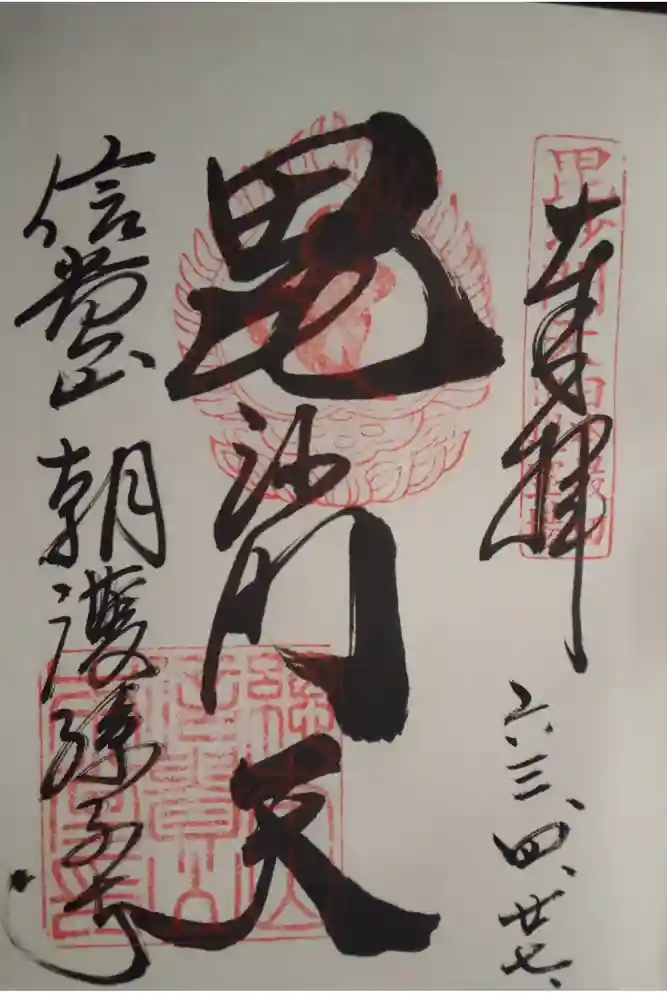 奉拝
六三、四、廿七、
毘沙門天
信貴山 朝護孫子寺